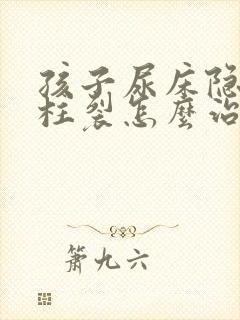 孩子尿床隐
柱裂怎麼治
箫九六